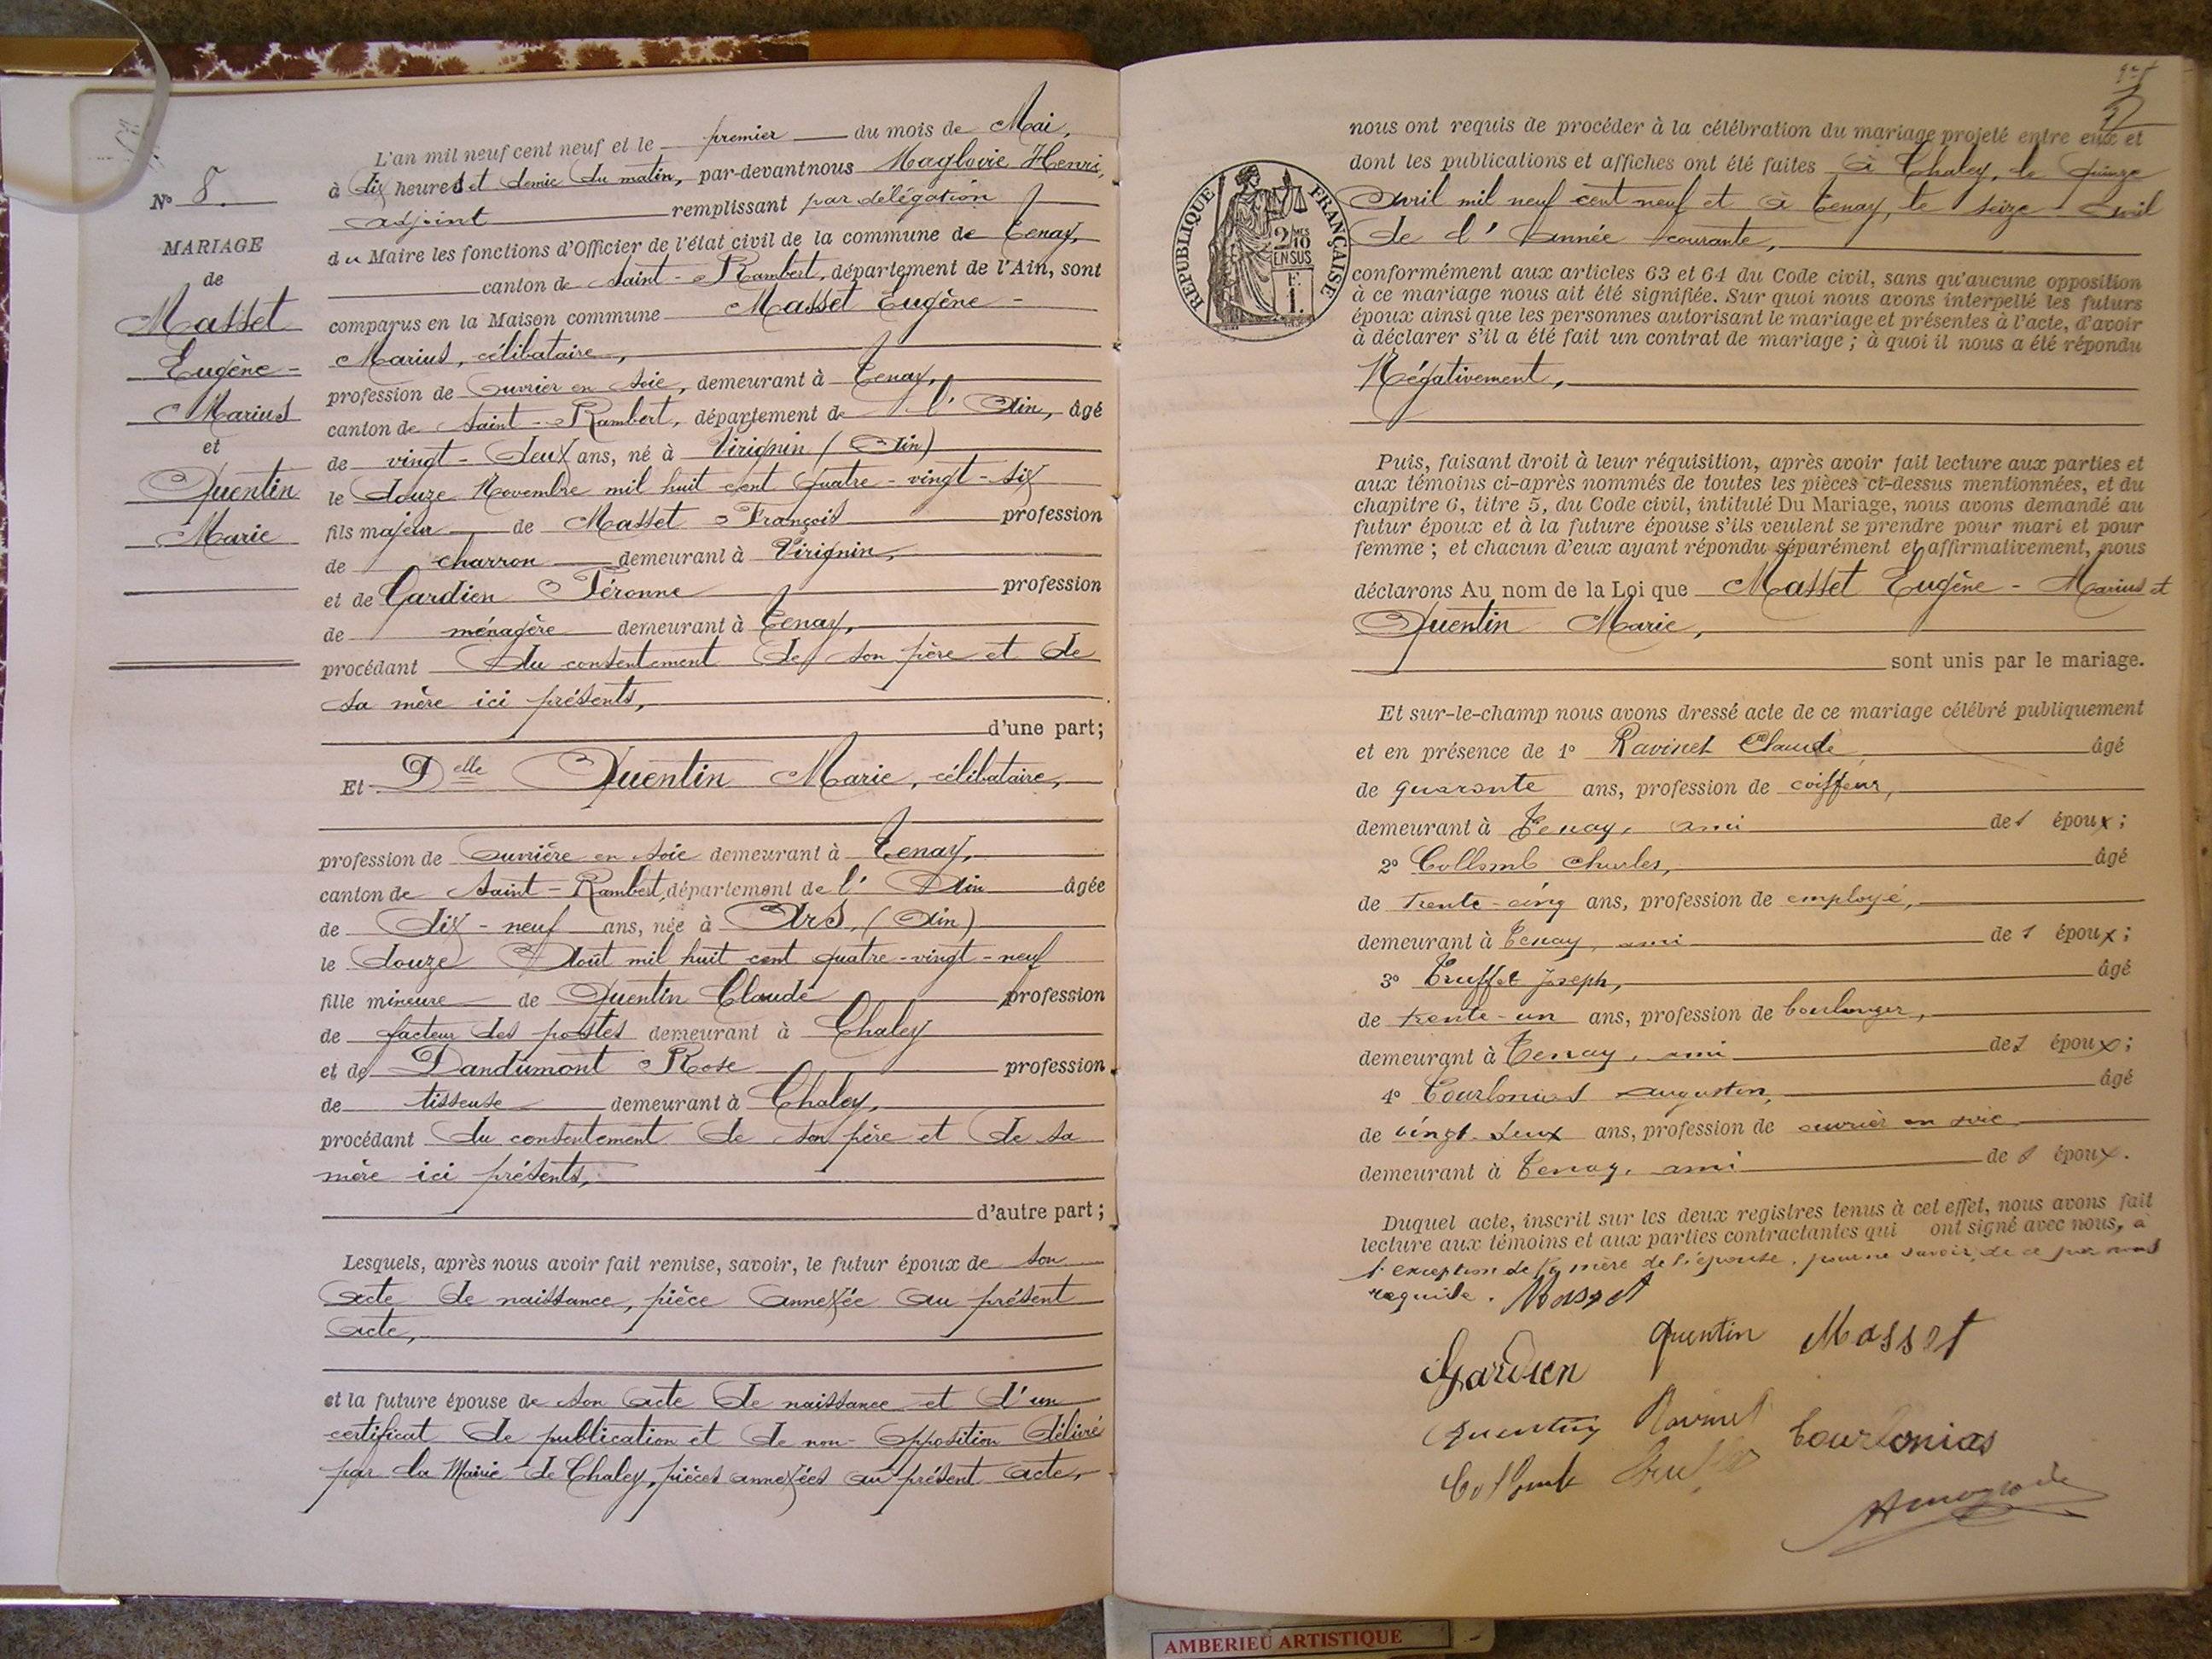 L'an mil neuf cent neuf et le premier du mois de Mai,
à dix heures et demie du matin, par-devant nous Magloire Henri,
adjoint remplissant par délégation
du Maire les fonctions d'Officier de l'état civil de la commune de Tenay,
canton de Saint-Rambert, département de l'Ain, sont
comparus en la Maison commune Masset Eugène-
Marius, célibataire,
profession de Ouvrier en soie, demeurant à Tenay,
canton de Saint-Rambert, département de l'Ain, âgé
de vingt-deux ans, né à Virignin (Ain)
le douze Novembre mil huit cent quatre-vingt-six
fils majeur de Masset François profession
de charron demeurant à Virignin,
et de Gardien Féronne profession
de ménagère demeurant à Tenay,
procédant du consentement de son père et de
sa mère ici présents,
d'une part;
Et Delle Quentin Marie, célibataire,
profession de Ouvrière en soie demeurant à Tenay,
canton de Saint-Rambert, département de l'Ain âgée
de dix-neuf ans, née à Ars, (Ain)
le douze Août mil huit cent quatre-vingt-neuf
fille mineure de Quentin Claude profession
de facteur des postes demeurant à Chaley
et de Dandumont Rose profession
de tisseuse demeurant à Chaley,
procédant du consentement de son père et de sa
mère ici présents,
d'autre part;
Lesquels, après nous avoir fait remise, savoir, le futur époux de son
acte de naissance, pièce annexée au présent
acte,
et la future épouse de son acte de naissance et d'un
certificat de publication et de non-opposition délivré
par la Mairie de Chaley, pièces annexées au présent acte,
N° 8.
MARIAGE
de
Masset
Eugène-
Marius
et
Quentin
Marie
nous ont requis de procéder à la célébration du mariage projeté entre eux et
dont les publications et affiches ont été faites à Chaley, le quinze
Avril mil neuf cent neuf et à Tenay, le seize Avril
de l'année courante,
conformément aux articles 63 et 64 du Code civil, sans qu'aucune opposition
à ce mariage nous ait été signifiée. Sur quoi nous avons interpellé les futurs
époux ainsi que les personnes autorisant le mariage et présentes à l'acte, d'avoir
à déclarer s'il a été fait un contrat de mariage; à quoi il nous a été répondu
Négativement,
Puis, faisant droit à leur réquisition, après avoir fait lecture aux parties et
aux témoins ci-après nommés de toutes les pièces ci-dessus mentionnées, et du
chapitre 6, titre 5, du Code civil, intitulé Du Mariage, nous avons demandé au
futur époux et à la future épouse s'ils veulent se prendre pour mari et pour
femme; et chacun d'eux ayant répondu séparément et affirmativement, nous
déclarons Au nom de la Loi que Masset Eugène-Marius et
Quentin Marie,
sont unis par le mariage.
Et sur-le-champ nous avons dressé acte de ce mariage célébré publiquement
et en présence de 1° Ravinet Claude âgé
de quarante ans, profession de coiffeur,
demeurant à Tenay, ami de l époux;
2° Collomb Charles, âgé
de trente-cinq ans, profession de employé,
demeurant à Tenay, ami de l époux;
3° Truffet Joseph, âgé
de trente-un ans, profession de boulanger,
demeurant à Tenay, ami de l époux;
4° Courbonias Augustin, âgé
de vingt-deux ans, profession de ouvrier en soie
demeurant à Tenay, ami de l époux.
Duquel acte, inscrit sur les deux registres tenus à cet effet, nous avons fait
lecture aux témoins et aux parties contractantes qui ont signé avec nous, à
l'exception de la mère de l'épouse, pour ne savoir, de ce par nous
requise. Masset
Gardien Quentin Masset
Quentin Ravinet Courbonias
Collomb Truffet
REPUBLIQUE FRANÇAISE
2/10MES
EN SUS
F. 1.
AMBERIEU ARTISTIQUE